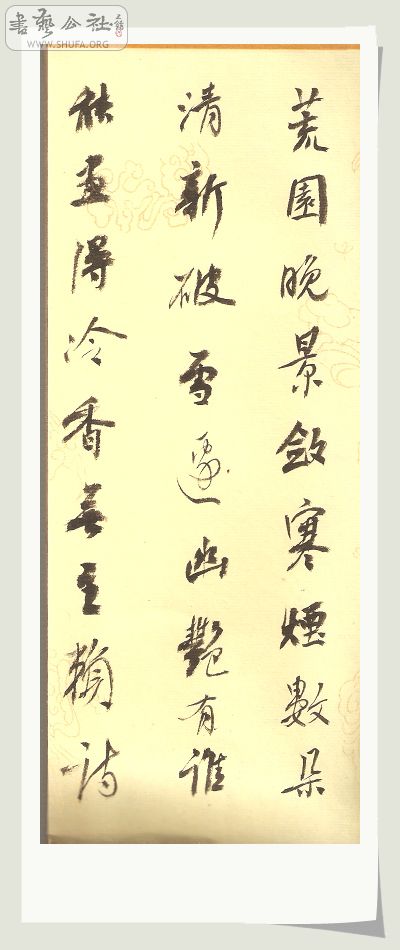 書藝公社
WWW.SHUFA.ORG
荒園晚景斂寒煙數朵
清新破雪邊幽艷有誰
能畫得冷香無主賴詩